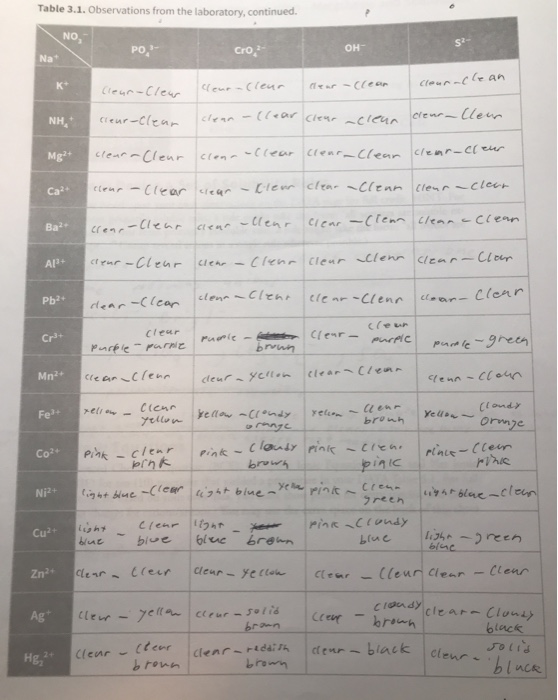 Table 3.1. Observations from the laboratory, continued.
NO₃⁻ PO₄³⁻ CrO₄²⁻ OH⁻ S²⁻
Na⁺
K⁺ clear-clear clear-clear clear-clear clear-clean
NH₄⁺ clear-clear clear-clear clear-clear clear-clear
Mg²⁺ clear-clear clear-clear clear-clear clear-clear
Ca²⁺ clear-clear clear-clear clear-clear clear-clear
Ba²⁺ clear-clear clear-clear clear-clear clear-clear
Al³⁺ clear-clear clear-clear clear-clear clear-clear
Pb²⁺ clear-clear clear-clear clear-clear clear-clear
Cr³⁺ clear purple - brown clear - clear
purple - purple purple purple - green
Mn²⁺ clear-clear clear-yellow clear-clear clear-clear
Fe³⁺ yellow - clear yellow - cloudy yellow - clear yellow - cloudy
yellow orange brown orange
Co²⁺ pink - clear pink - cloudy pink - clear pink - clear
pink brown pink pink
Ni²⁺ light blue - clear light blue - pink - clear light blue - clear
green
Cu²⁺ light - clear light - pink - cloudy
blue blue blue brown blue light - green
blue
Zn²⁺ clear - clear clear - yellow clear - clear clear - clear
Ag⁺ clear - yellow clear - solid clear - cloudy clear - cloudy
brown brown black
Hg₂²⁺ clear - clear clear - reddish clear - black clear - solid
brown brown black